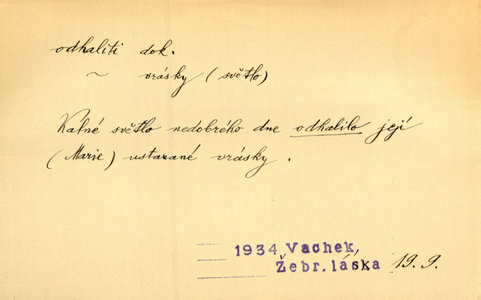 odhaliti dok.
~ vrásky (světlo)
Kalné světlo nedobrého dne odhalilo její
(Marie) ustarané vrásky.
1934 Vachek,
Žebr. láska 19.9.